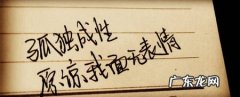 孤独成性
原谅我面无表情
广东龙网